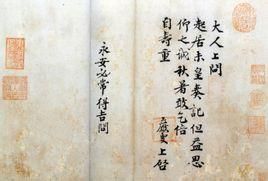 大人上問
起居未皇奏記但益思
仰之誠秋暑敢乞倍
自壽重
上啓
永安必常得吉問